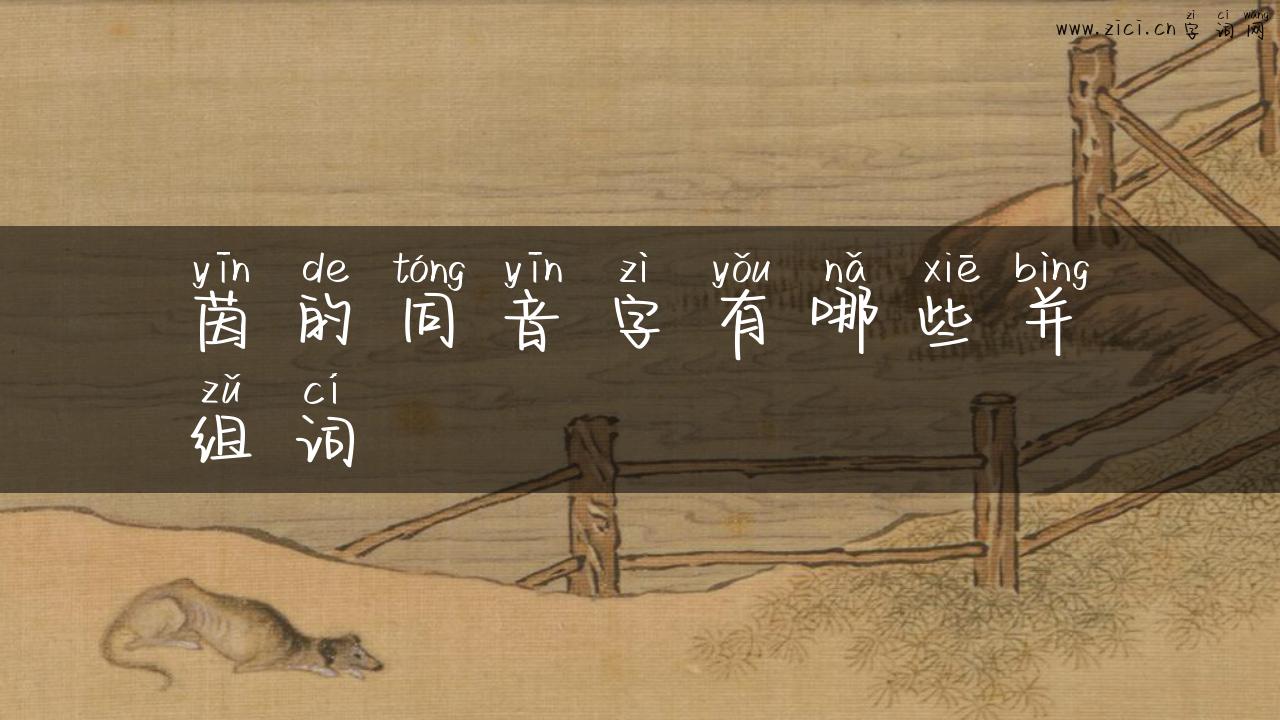 zì cí wǎng
www.zici.cn 字词网
yīn de tóng yīn zì yǒu nǎ xiē bìng
茵的同音字有哪些并
zǔ cí
组词